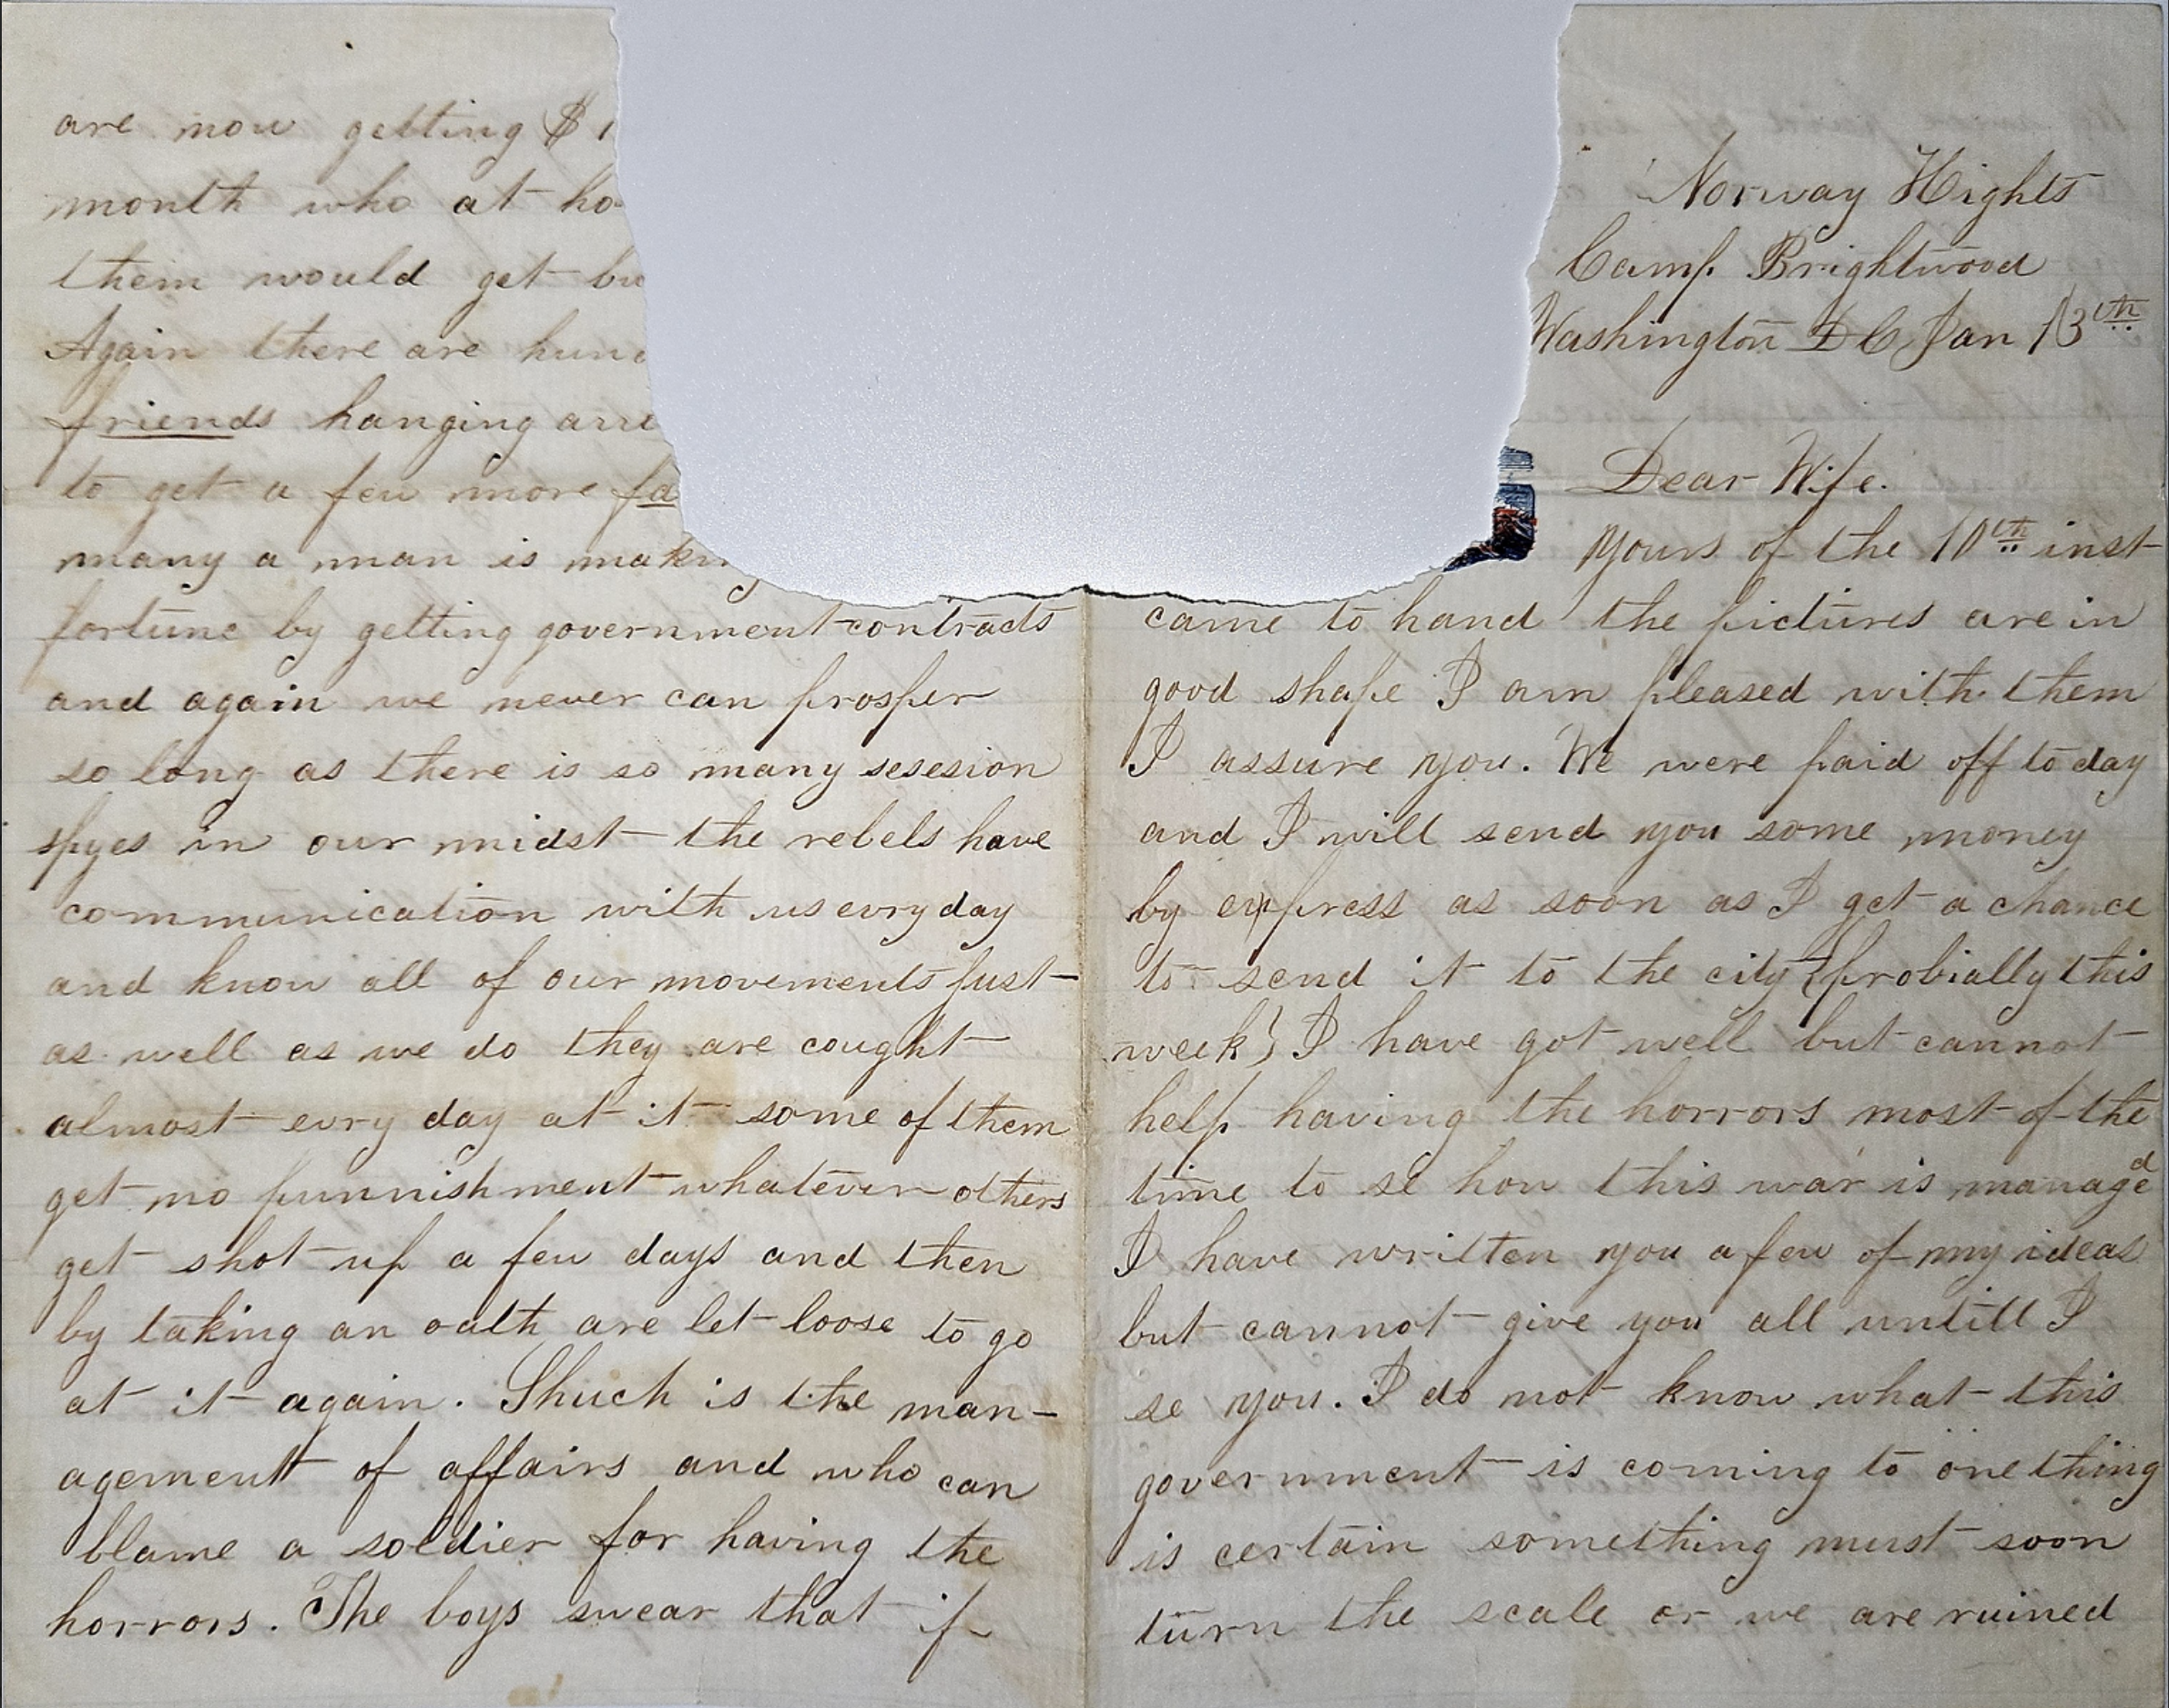 are now getting $ 1
month who at ho
them would get bu
Again there are hund
friends hanging arro
to get a few more fa
many a man is making
fortune by getting government contracts
and again we never can prosper
so long as there is so many sesesion
spyes in our midst the rebels have
communication with us evry day
and know all of our movements just
as well as we do they are cought
almost evry day at it some of them
get no punnishment whatever others
get shot up a few days and then
by taking an oath are let loose to go
at it again. Shuch is the man-
agement of affairs and who can
blame a soldier for having the
horrors. The boys swear that if
Norway Hights
Camp Brightwood
Washington D C Jan 13th
Dear Wife.
Yours of the 10th inst
came to hand the pictures are in
good shape I am pleased with them
I assure you. We were paid off to day
and I will send you some money
by express as soon as I get a chance
to send it to the city {probially this
week} I have got well but cannot
help having the horrors most of the
time to se how this war is managed
I have written you a few of my ideas
but cannot give you all untill I
se you. I do not know what this
government is coming to one thing
is certain something must soon
turn the scale or we are ruined